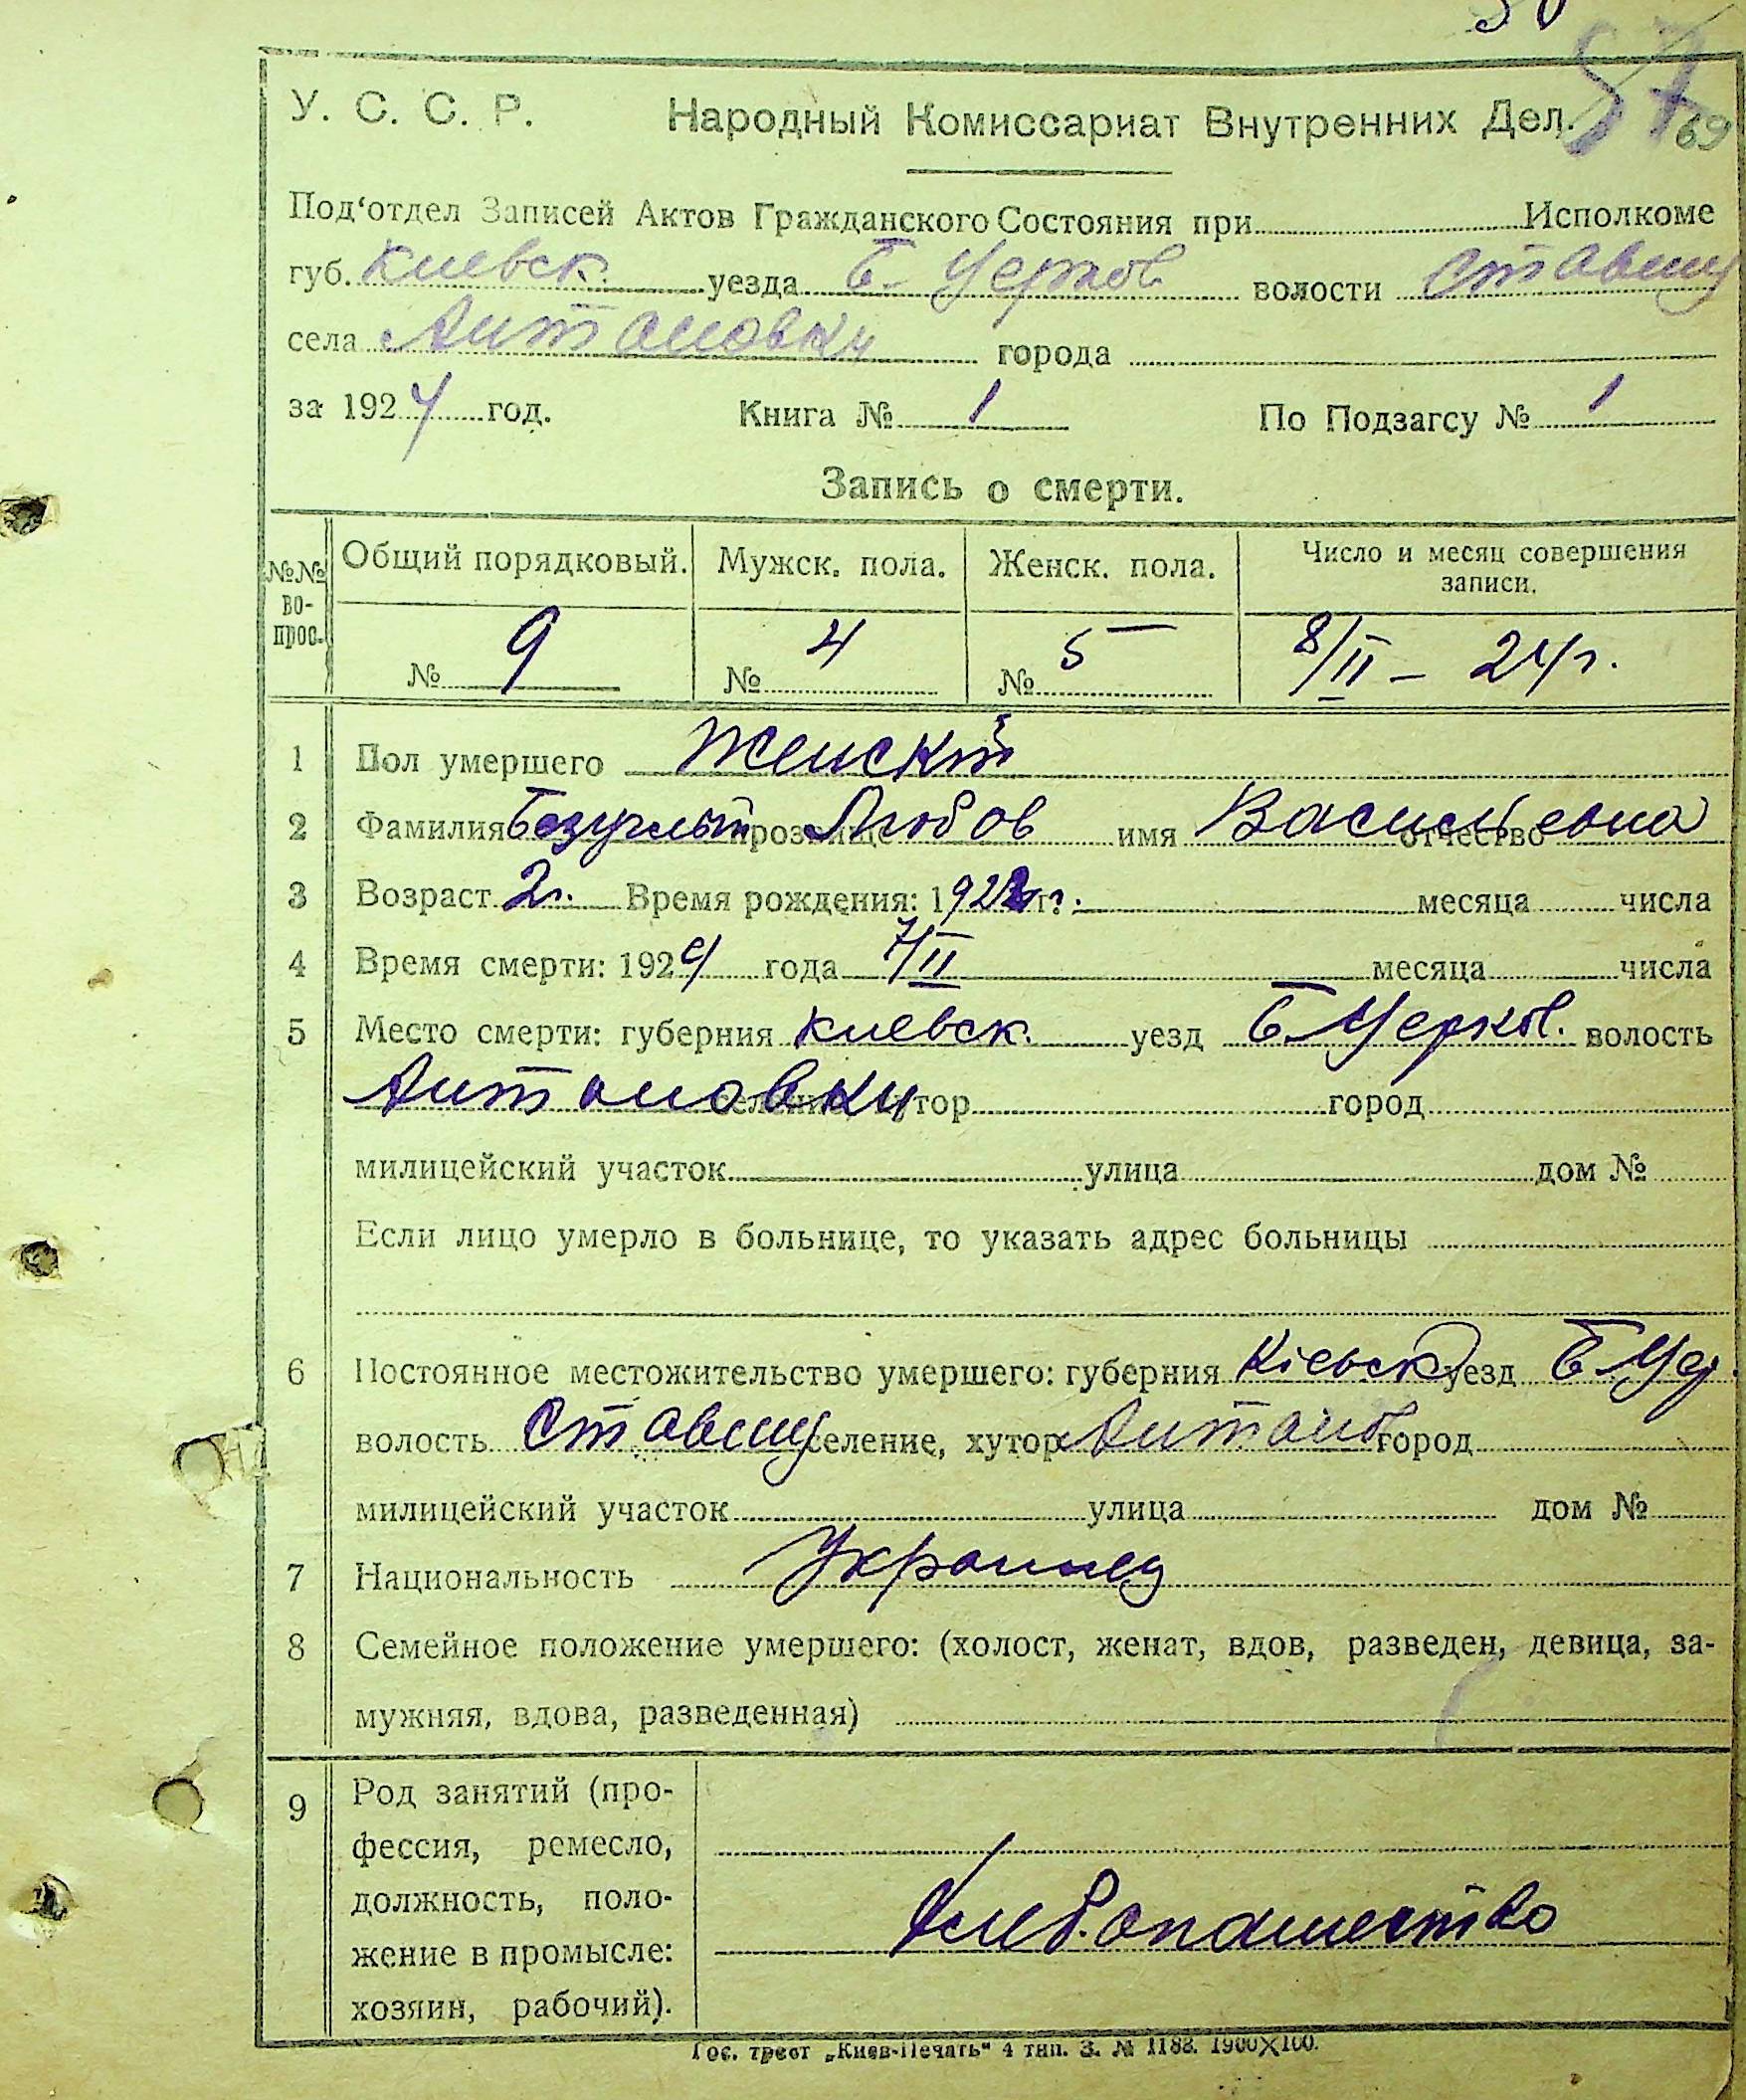 69
У. С. С. Р. Народный Комиссариат Внутренних Дел.
Под‘отдел Записей Актов Гражданского Состояния при Исполкоме
губ. Киевск. уезда Б-Церков волости Ставищ
села Антановки города
за 1924 год. Книга № 1 По Подзагсу № 1
Запись о смерти.
№№ во-прос. Общий порядковый. Мужск. пола. Женск. пола. Число и месяц совершения записи.
№ 9 № 4 № 5 8/II – 24 г.
1 Пол умершего Женский
2 Фамилия прозвище Любов имя Васильевна отчество
3 Возраст 2 г. Время рождения: 1922 г. месяца числа
4 Время смерти: 1924 года 7/II месяца числа
5 Место смерти: губерния Киевск. уезд Б-Церков. волость
Антановки селение, хутор город
милицейский участок улица дом №
Если лицо умерло в больнице, то указать адрес больницы
6 Постоянное местожительство умершего: губерния Кіевск уезд Б-Цер.
волость Ставищ селение, хутор Антанов город
милицейский участок улица дом №
7 Национальность Украинец
8 Семейное положение умершего: (холост, женат, вдов, разведен, девица, за-
мужняя, вдова, разведенная)
9 Род занятий (про-
фессия, ремесло,
должность, поло-
жение в промысле:
хозяин, рабочий).
Хлебопашество
Гос. трест „Киев-Печать“ 4 тип. З. № 1188. 1900X100.